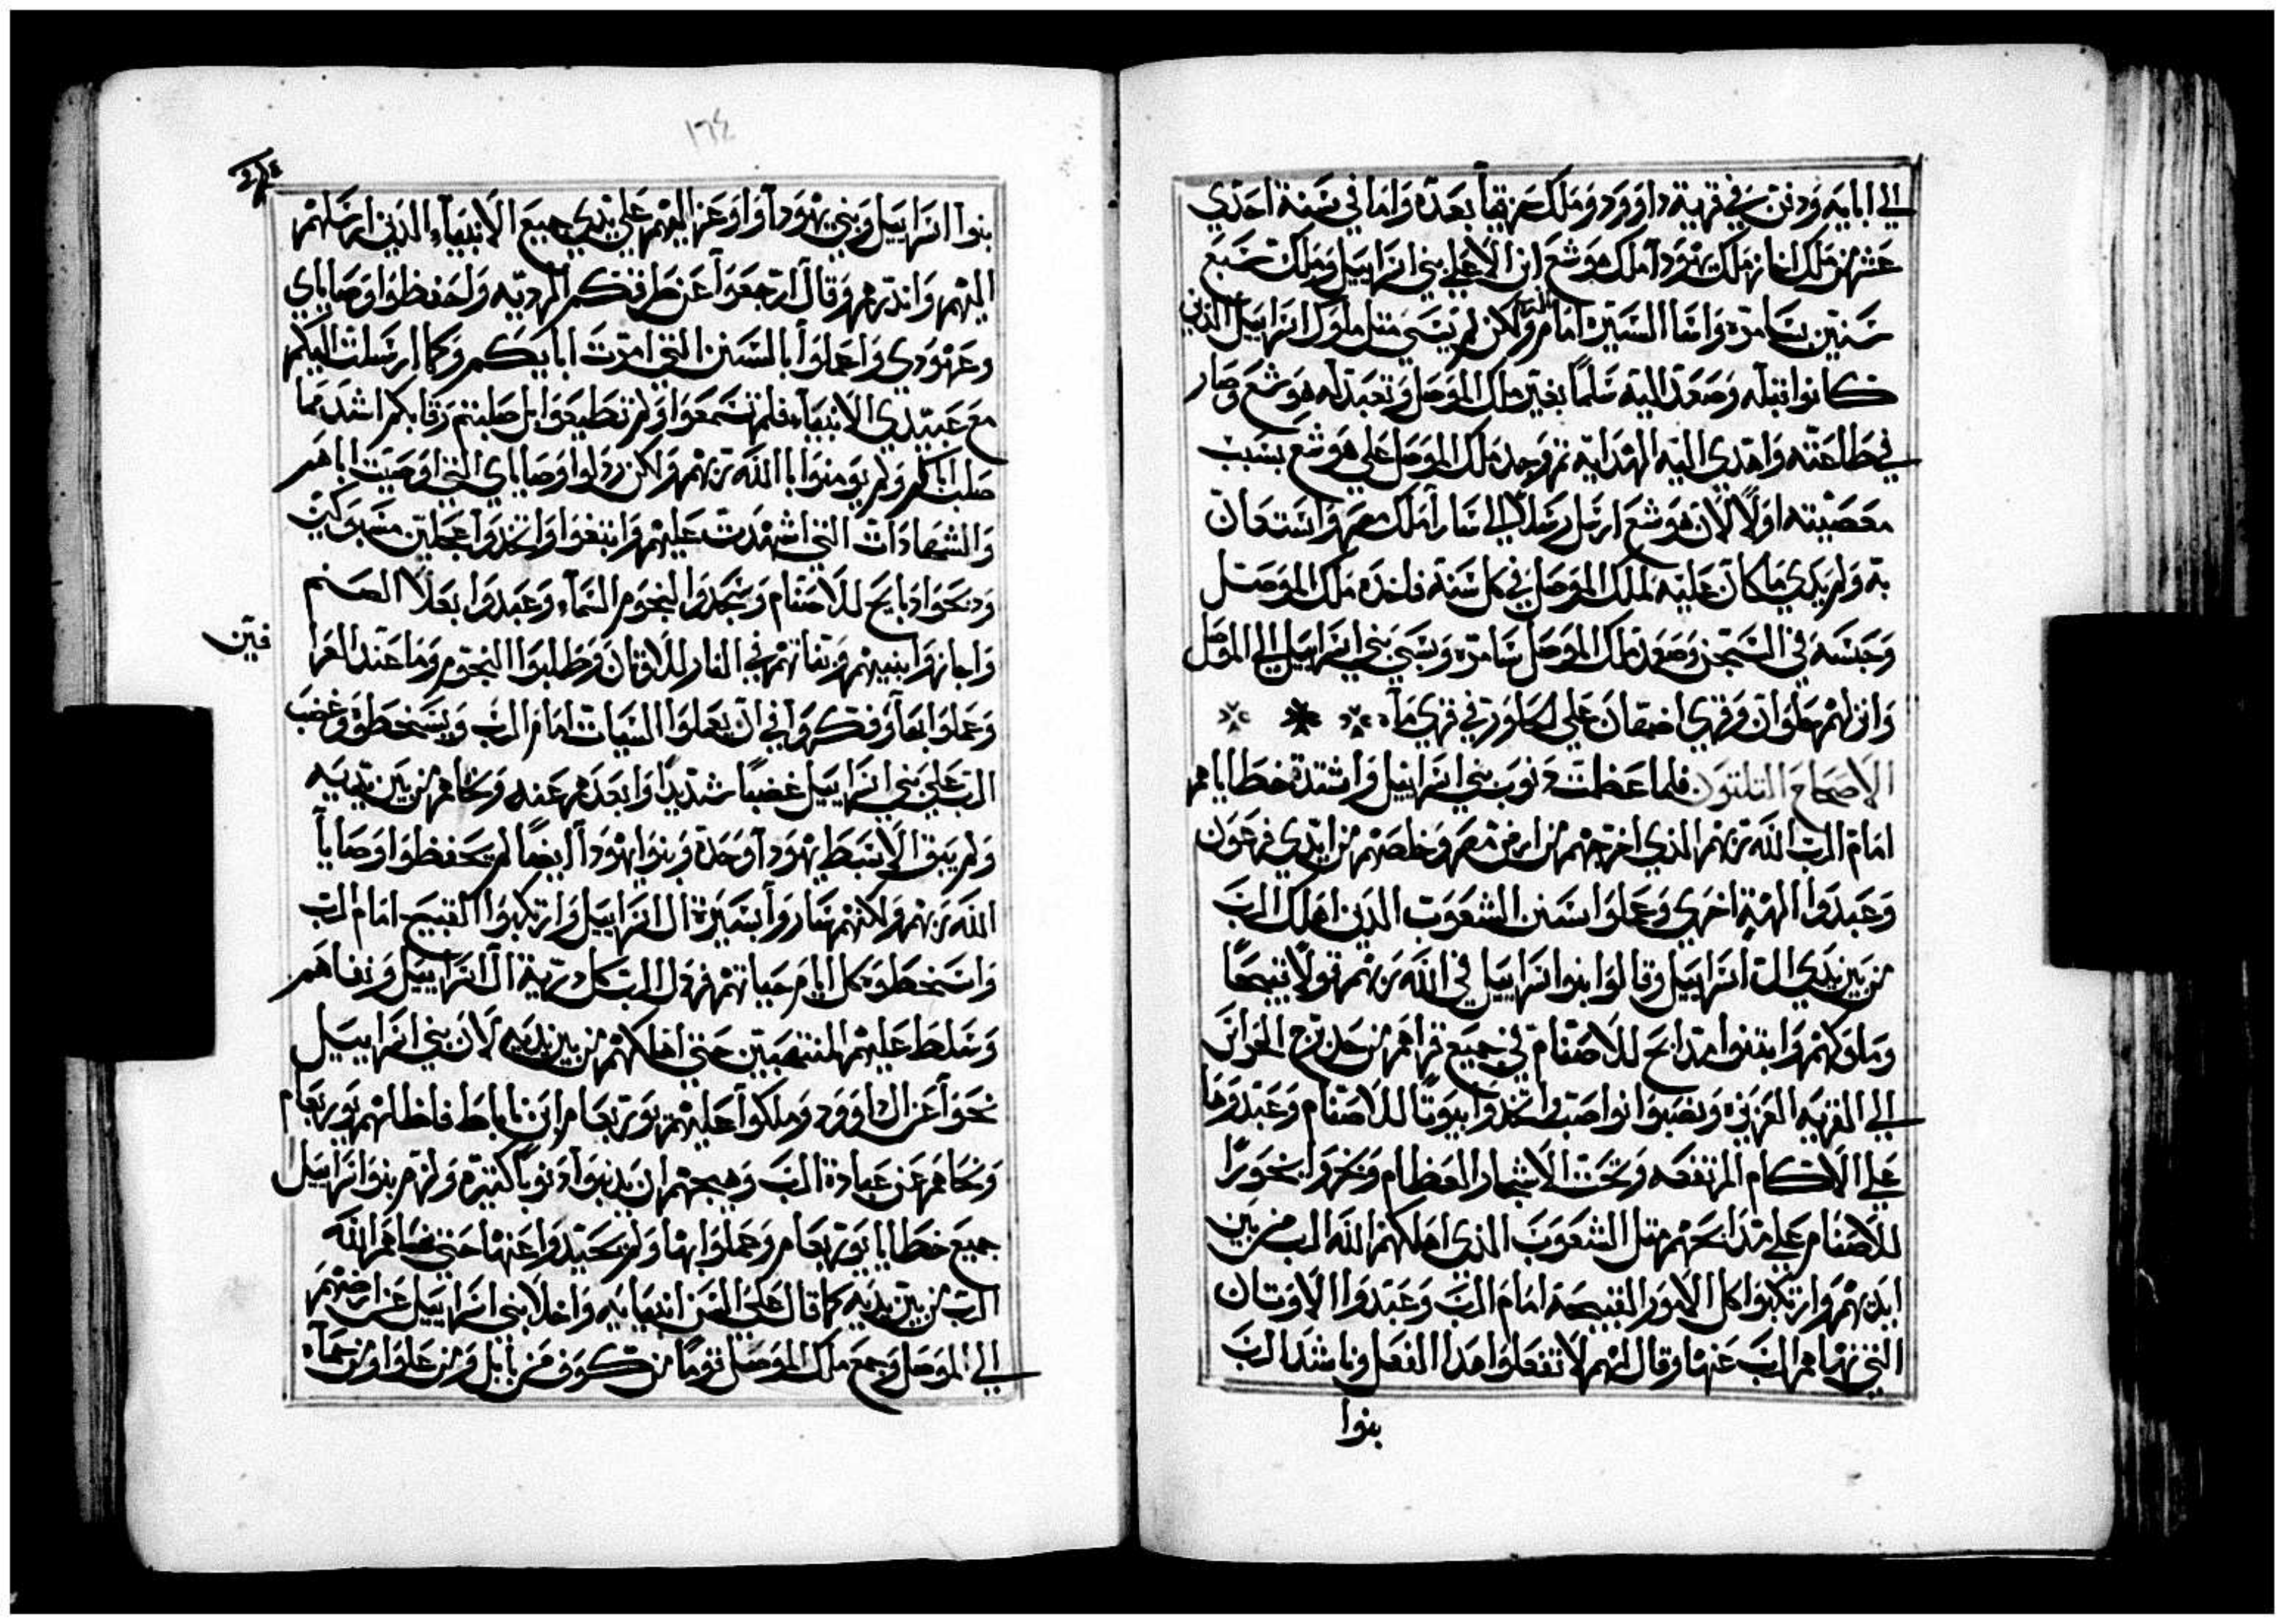 الي ابايه ودفن في قرية داوود وملك حزقيا بعده واما في سنة احدي
عشر من ملك احاز ملك يهودا ملك هوشع ابن الا علي بني اسراييل وملك تسع
سنتين بسامره واسا السيره امام الرب ولكن لم يسي مثل ملوك اسراييل الذين
كانوا قبله وصعد اليه سلما بغير ملك الموصل وتعبد له هوشع وصار
في طاعته واهدي اليه الهدايه ثم وجد ملك الموصل علي هوشع بسبب
معصيته اولا لان هوشع ارسل رسلا الي سارا ملك مصر واستعان
به ولم يدي ما كان عليه لملك الموصل في كل سنة فاخده ملك الموصل
وحبسه في السجن وصعد ملك الموصل سامره وسبي بني اسراييل الي الموصل
وانزلهم حلوان وقري اصفهان علي خاورتي قري ماه
الاصحاح التلتون فلما عظمت دنوب بني اسراييل واشتدة خطاياهم
امام الرب الله ربهم الذي اخرجهم من ارض مصر وخلصهم من ايدي فرعون
وعبدوا الهية اخري وعملوا بسنن الشعوب الدين اهلك الرب
من بين يدي ال اسراييل وقالوا بنوا اسراييل في الله ربهم قولا قبيحا
وملوكهم وابتنوا مدابح للاصنام في جميع قراهم من حد برج الحواثر
الي القريه العزيزه ونصبوا نواصب واتخدوا بيوتا للاصنام وعبدوها
علي الاكام المرتفعه وتحت الاشجار العظام وبخروا بخورا
للاصنام علي مدابحهم مثل الشعوب الذي اهلكهم الله الرب من بين
ايديهم وارتكبوا كل الامور القبيحة امام الرب وعبدوا الاوتان
التي نهاهم الرب عنها وقال لهم لا تفعلوا هدا الفعل وناشدا الرب
بنوا
١٦٤
بنوا اسراييل وبني يهودا واوعز اليهم علي يدي جميع الانبياء الذين ارسلهم
اليهم واندرهم وقال ارجعوا عن طرقكم الرديه واحفظوا وصاياي
وعهودي واعملوا بالسنن التي امرت ابايكم وكما ارسلت اليكم
مع عبيدي الانبياء فلم تسمعوا ولم تطيعوا بل صلبتم رقابكم اشد مما
صلب اباكم ولم يومنوا بالله ربهم ولكن ردلوا وصاياي التي اوصيت اباهم
والشهادات التي اشهدت عليهم واتبعوا واتخدوا عجلين مسبوكين
ودبحوا دبايح للاصنام وسجدوا لنجوم السماء وعبدوا بعلا الصنم
واجازوا بنيهم وبناتهم في النار للاوثان وطلبوا النجوم وما عند العرا
فين
وعملوا بها وفكروا في ان يعملوا السيات امام الرب ويسخطوه وغضب
الرب علي بني اسراييل غضبا شديدا وابعدهم عنه ونحاهم من بين يديه
ولم يبق الا سبط يهودا وحده وبنوا يهودا ايضا لم يحفظوا وصايا
الله ربهم ولكنهم ساروا بسيرة ال اسراييل وارتكبوا القبيح امام الرب
واسخطوه كل ايام حياتهم فردل الرب كل درية ال اسراييل ونفاهم
وسلط عليهم المنتهبين حتي اهلكهم من بين يديه لان بني اسراييل
نحوا عن ال داوود وملكوا عليهم يوربعام ابن ناباط فاظلهم يوربعام
ونحاهم عن عبادة الرب وهيجهم ان يدنبوا دنوبا كثيره ولزم بنوا اسراييل
جميع خطايا يوربعام وعملوا بها ولم يحيدوا عنها حتي نفاهم الله
الرب من بين يديه كما قال علي السن انبيايه واخلا بني اسراييل عن ارضهم
الي الموصل وجمع ملك الموصل قوما من كوف من بابل ومن علوا ومن حماه